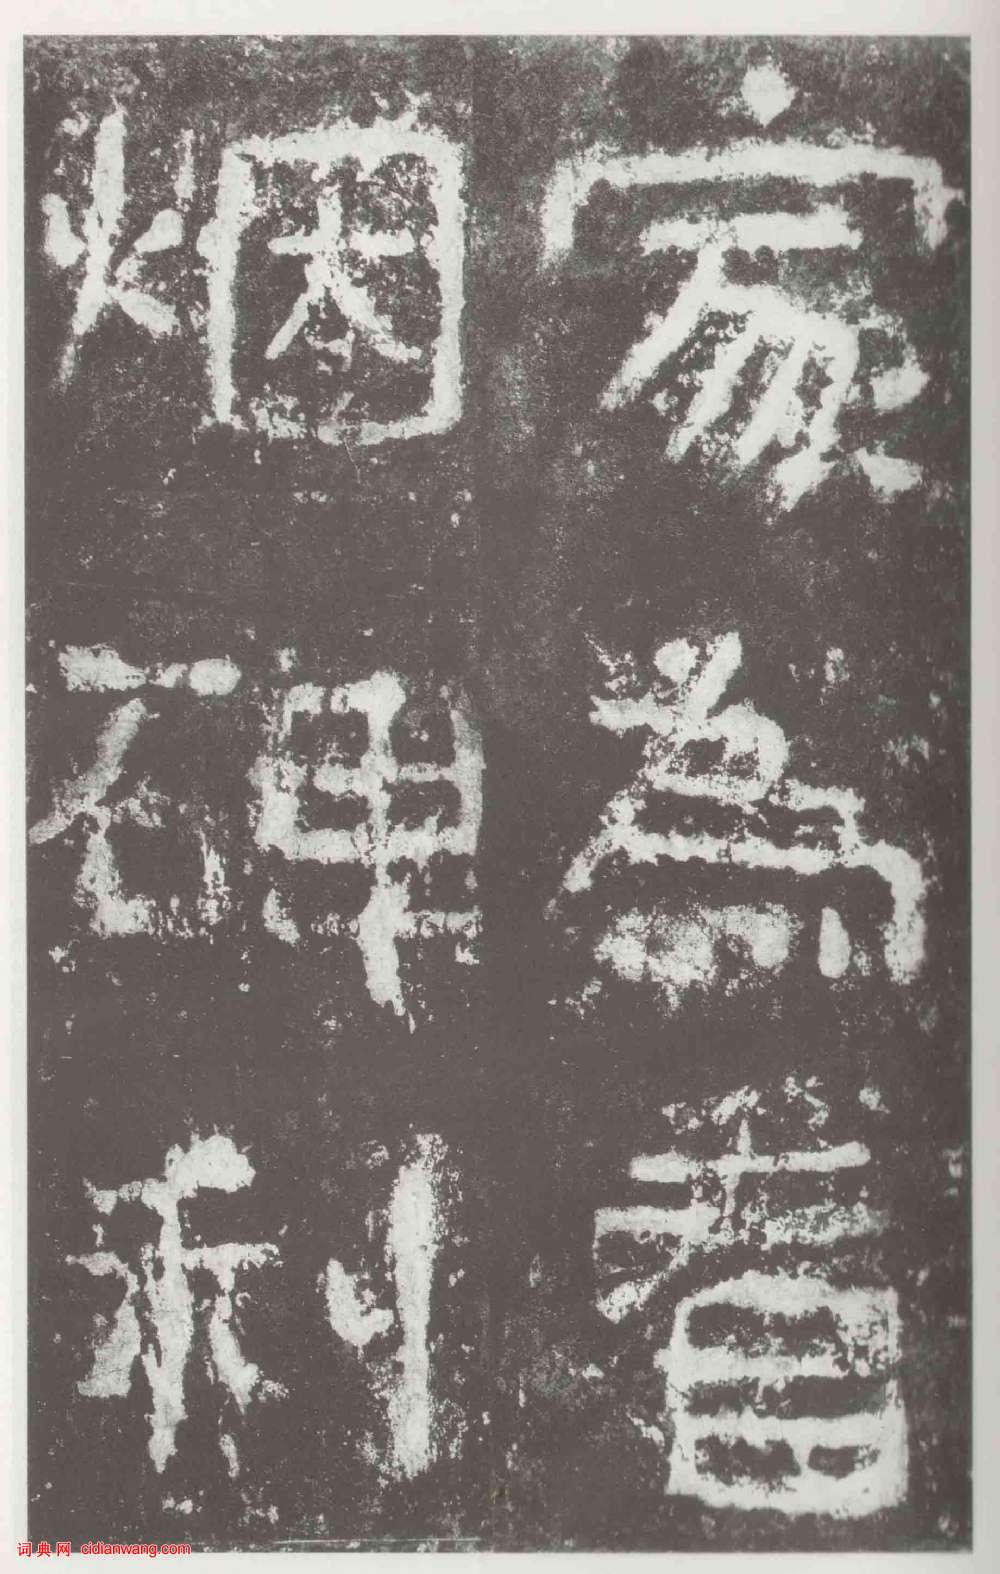 家為著
烟碑利
词典网 cidianwang.com